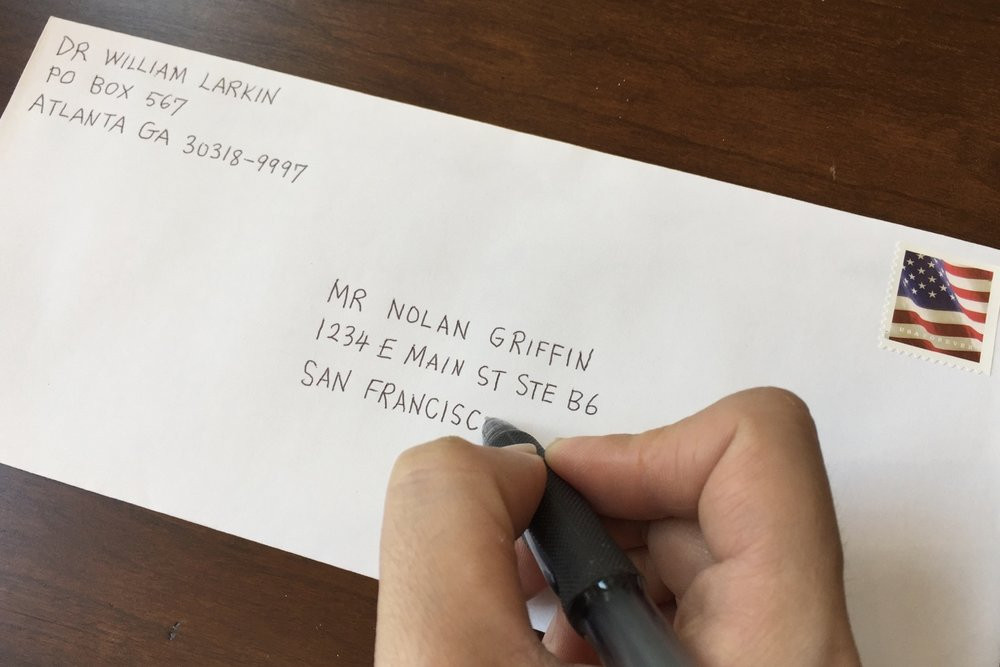 DR WILLIAM LARKIN
PO BOX 567
ATLANTA GA 30318-9997
MR NOLAN GRIFFIN
1234 E MAIN ST STE B6
SAN FRANCISC
USA FOREVER